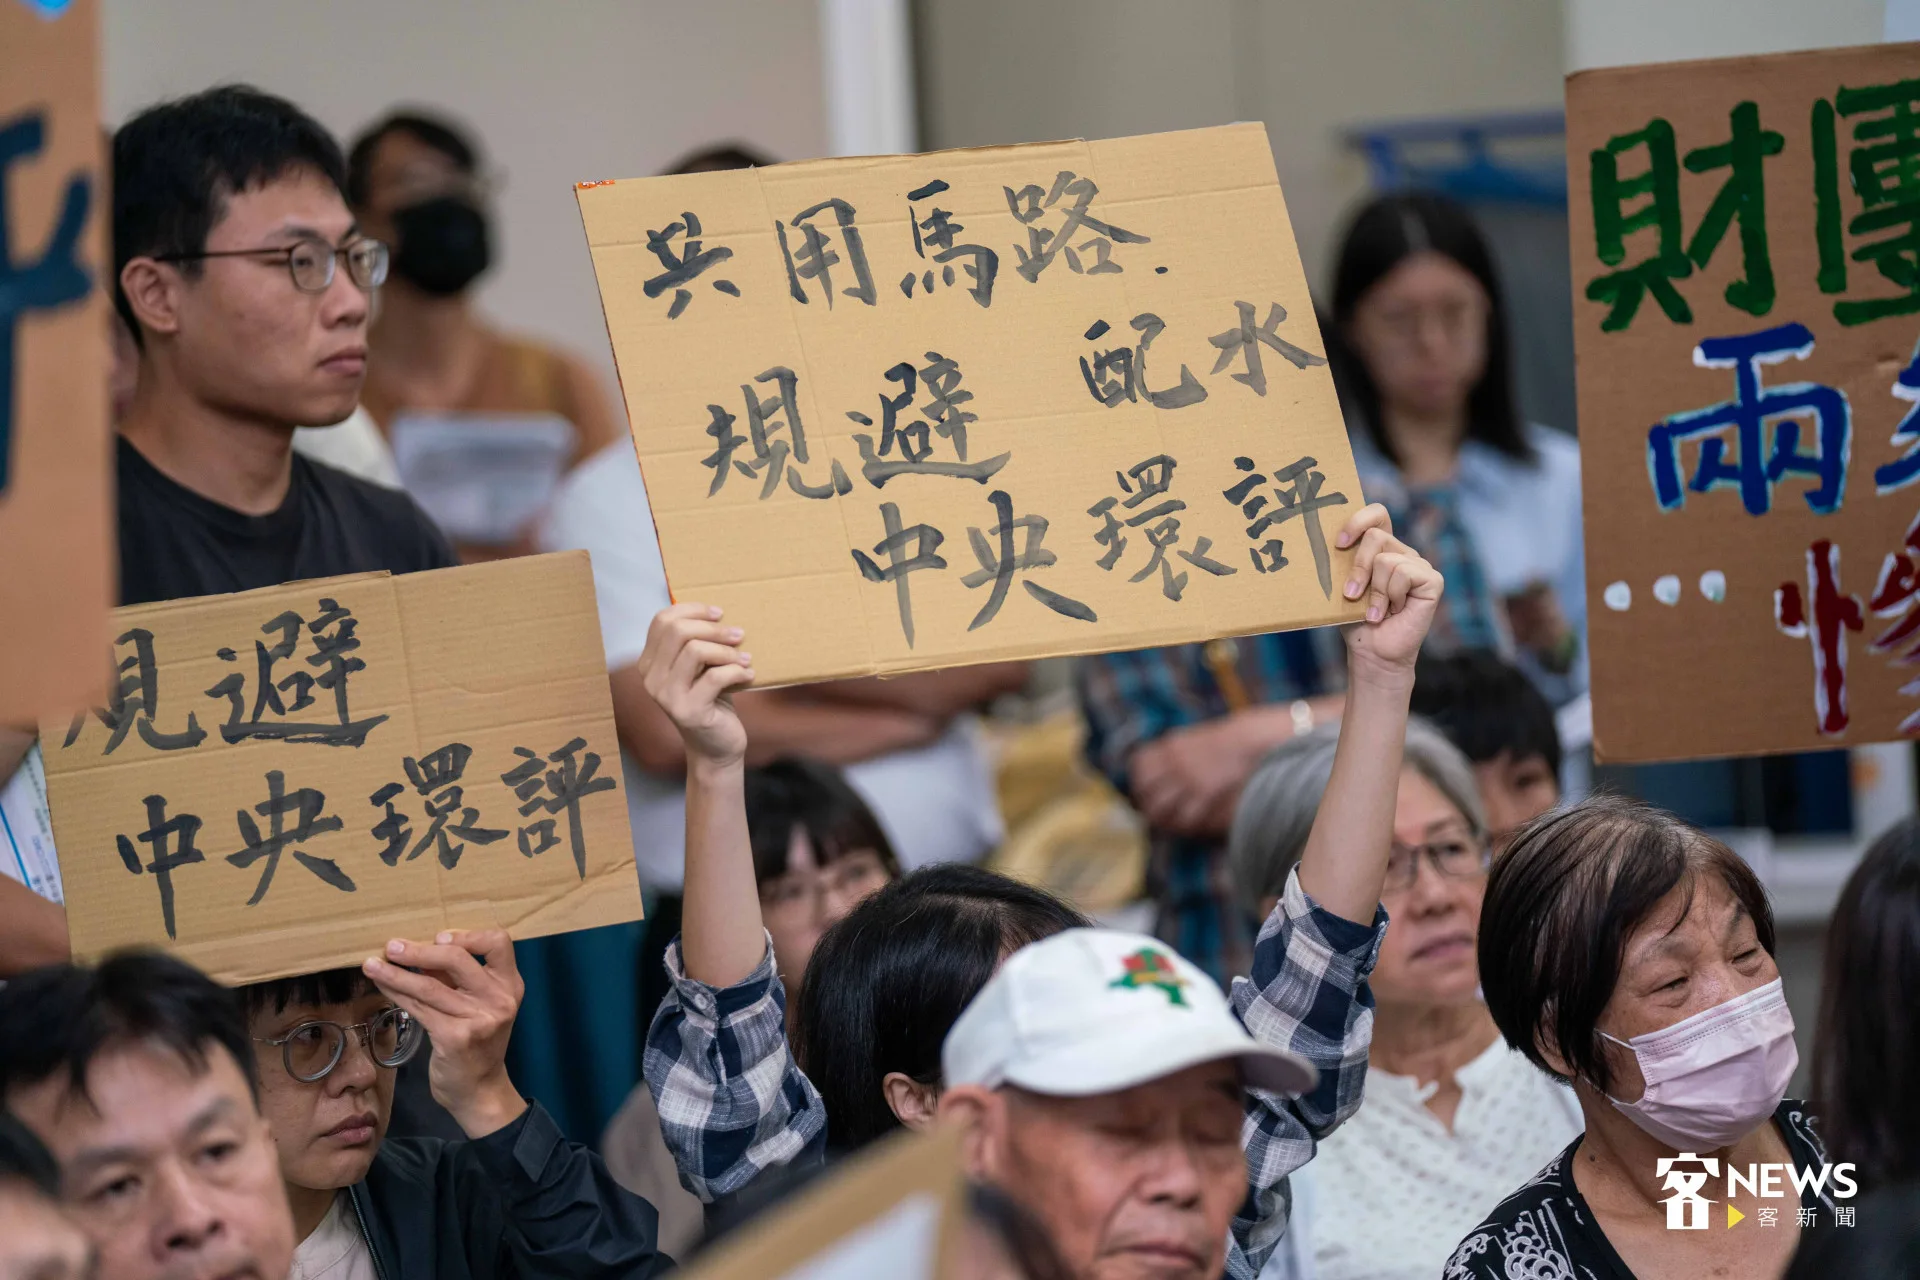 共用馬路.
配水
規避
中央環評
規避
中央環評
財團
兩
...慘
客NEWS
客新聞